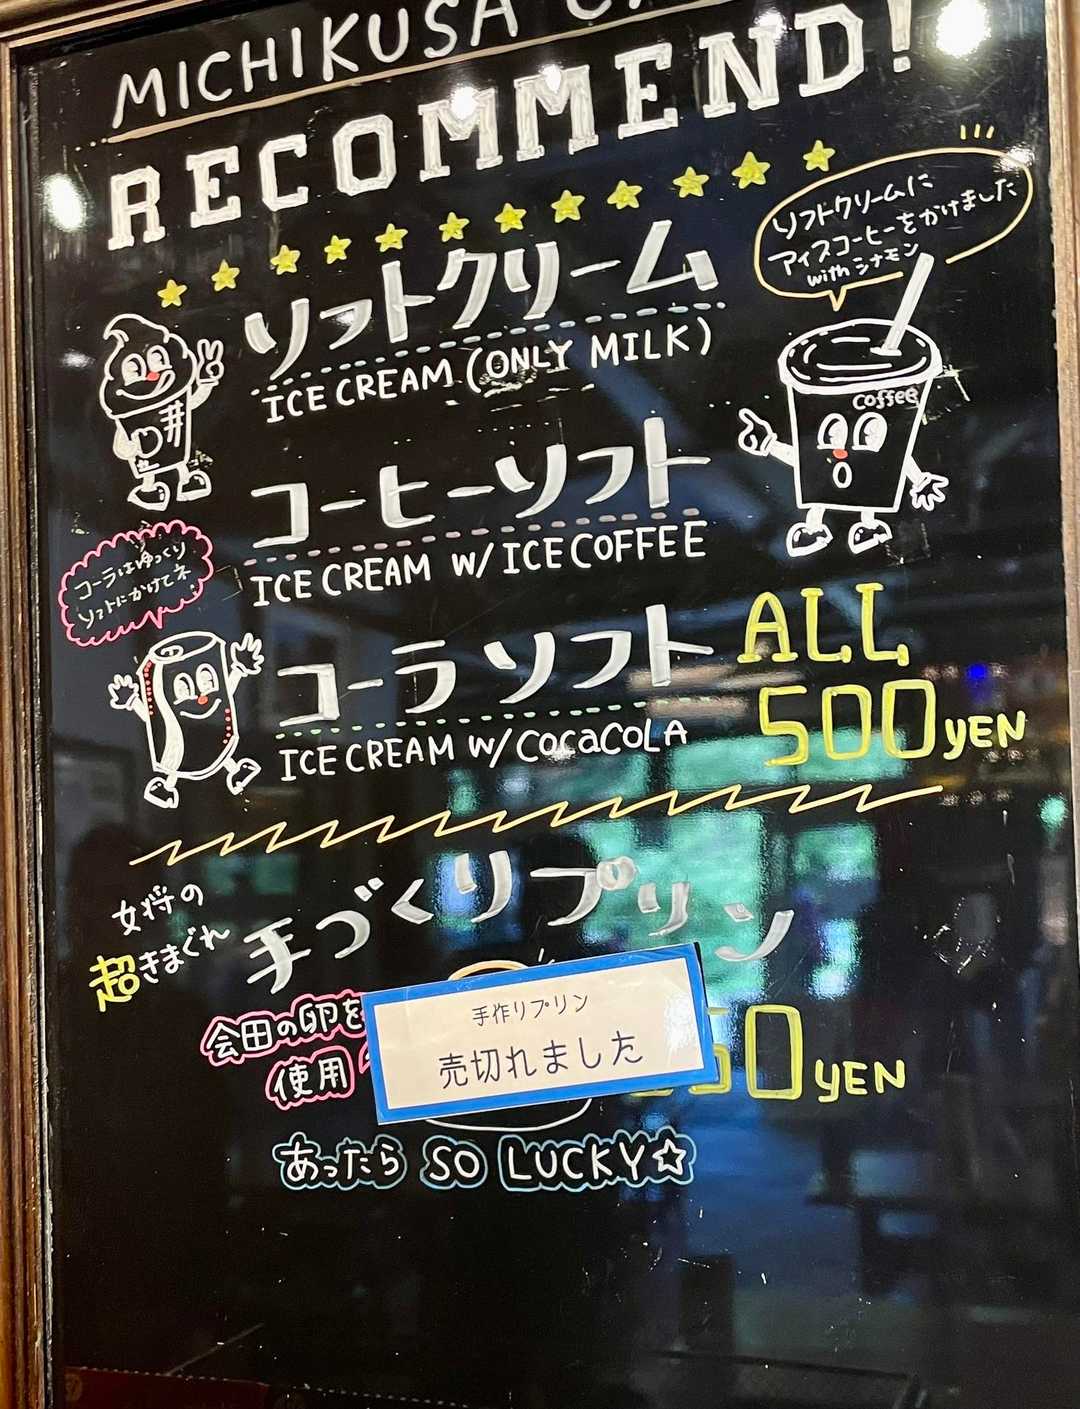 MICHIKUSA
RECOMMEND!
ソフトクリームに
アイスコーヒーをかけました
with シナモン
ソフトクリーム
ICE CREAM (ONLY MILK)
coffee
コーヒーソフト
ICE CREAM W/ ICE COFFEE
コーラはゆっくり
ソフトにかけてネ
コーラソフト
ICE CREAM W/ COCACOLA
ALL
500 YEN
女将の
超きまぐれ
手づくりプリン
会田の卵を
使用
手作りプリン
売切れました
50 YEN
あったら SO LUCKY☆